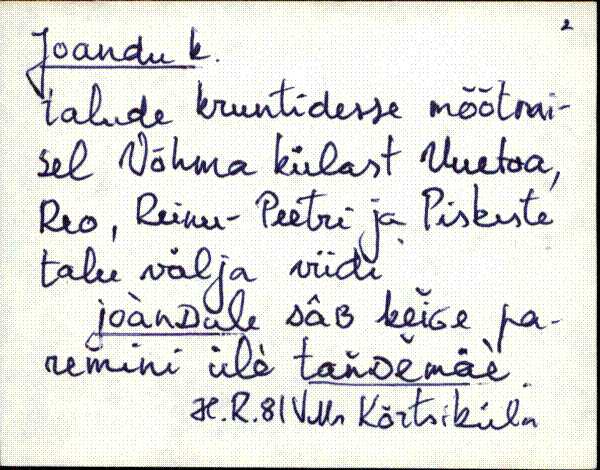 2
Joandu k.
talude kruntidesse mõõtmi-
sel Võhma külast Uuetoa,
Reo, Reinu-Peetri ja Piskiste
talu välja viidi
joànDule sâB kĕiGe pa-
remini ülè taňDĕmäè.
H.R. 81 VMr Kõrtsiküla